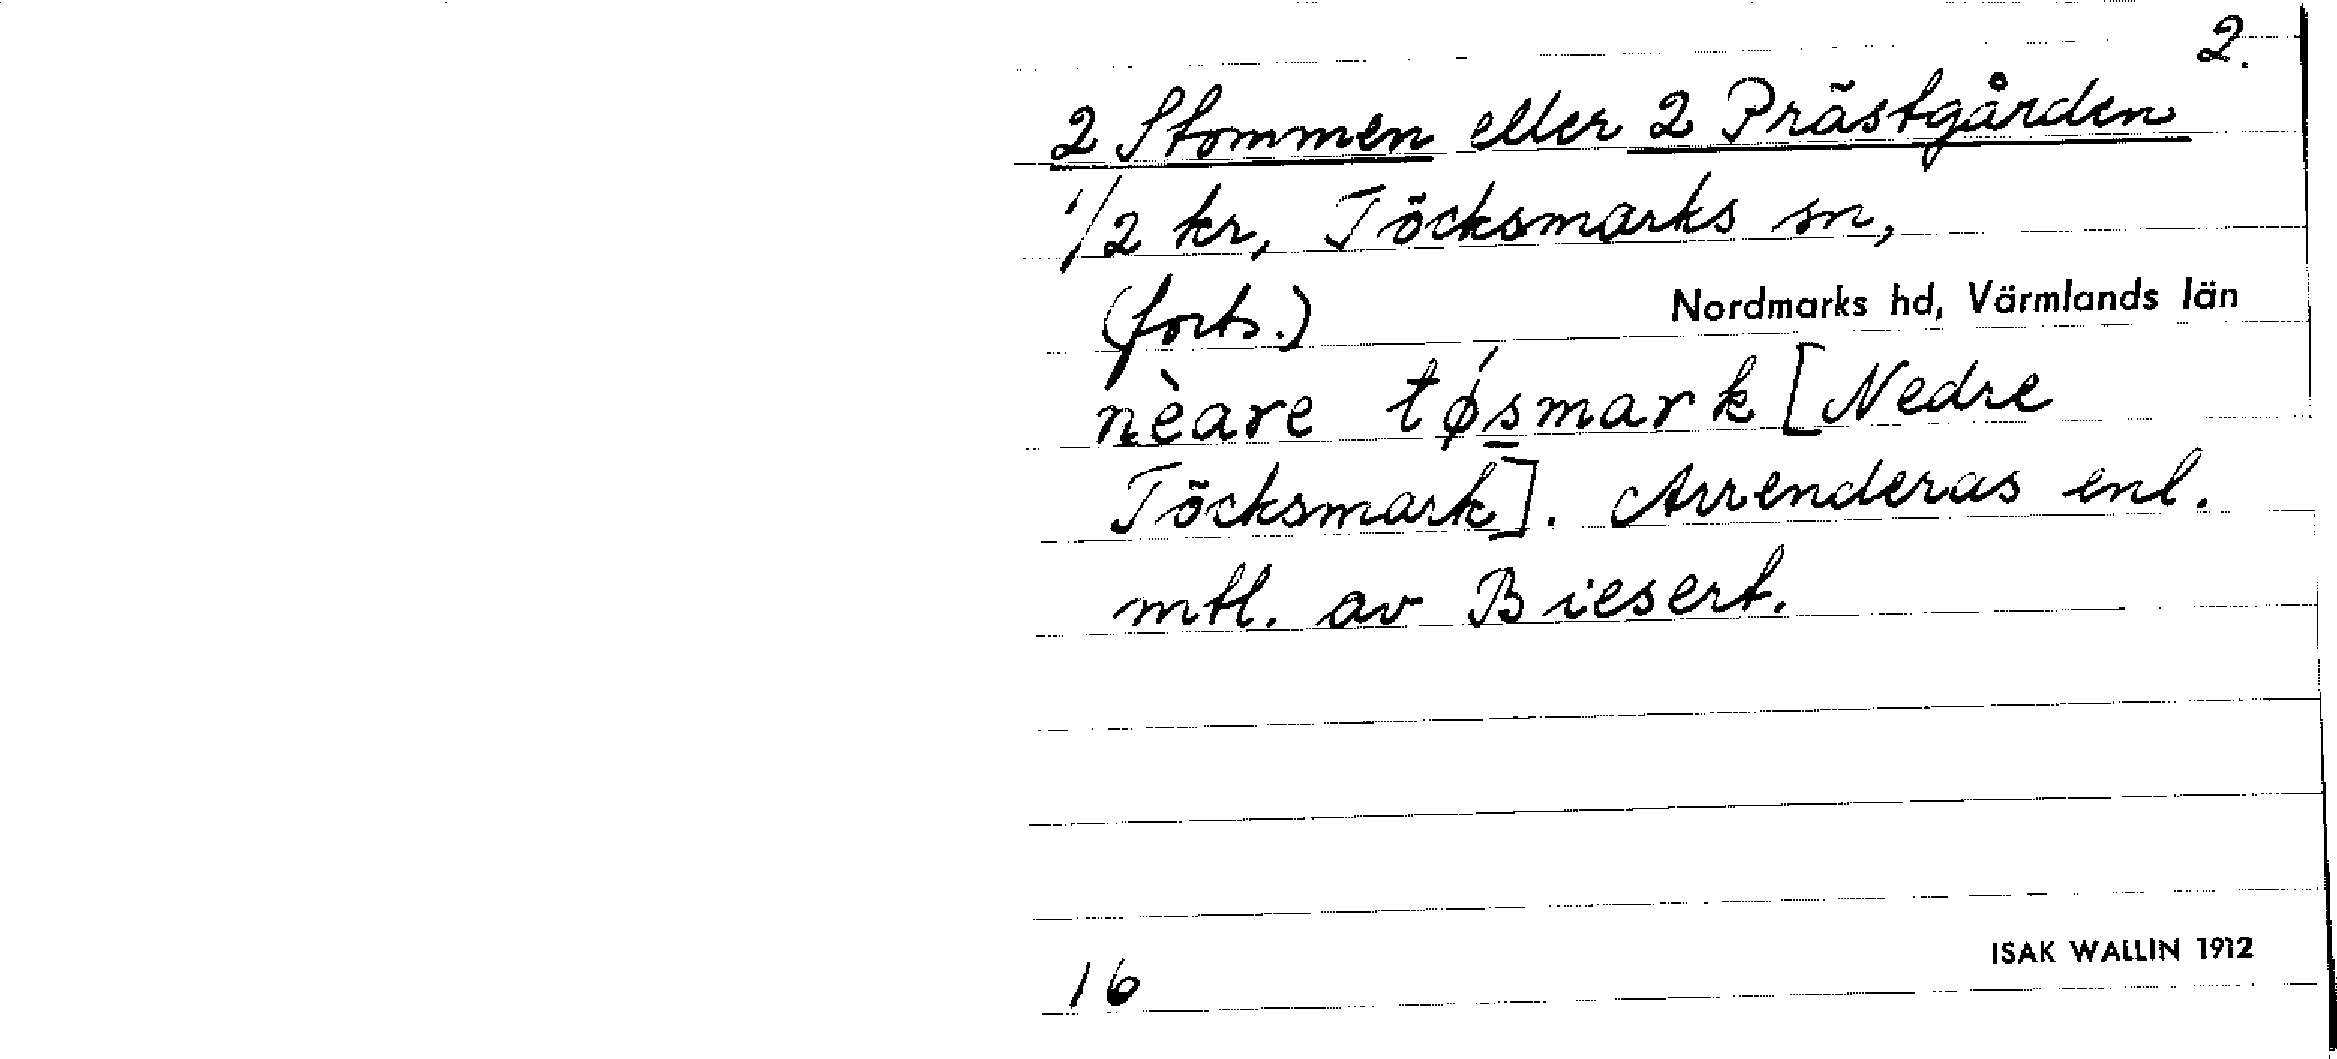 2.
2 Stommen eller 2 Prästgården
1/2 kr, Töcksmarks sn,
(forts.) Nordmarks hd, Värmlands län
nèare tǿsmark [Nedre
Töcksmark]. Arrenderas enl.
mtl. av Biesert.
ISAK WALLIN 1912
16